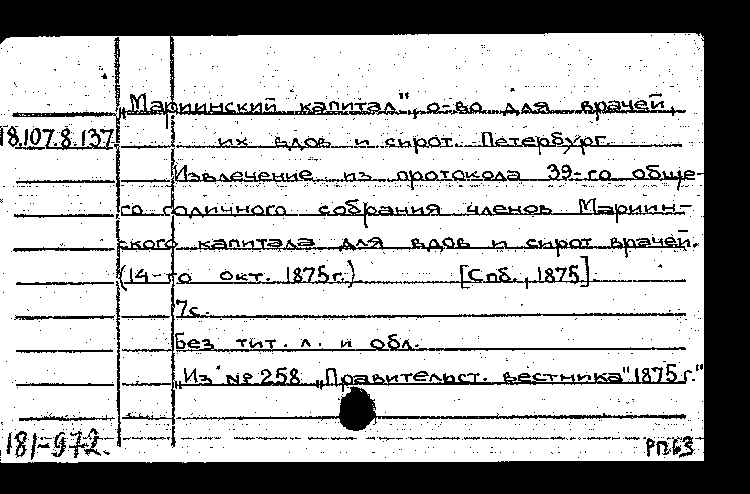 „Мариинский капитал", о-во для врачей,
18.107.8.137 их вдов и сирот. Петербург.
Извлечение из протокола 39-го обще-
го годичного собрания членов Мариин-
ского капитала для вдов и сирот врачей.
(14-го окт. 1875г.) [Спб., 1875].
7с.
Без тит. л. и обл.
„Из № 258 „Правительст. вестника" 1875 г."
181-972. РПБЗ